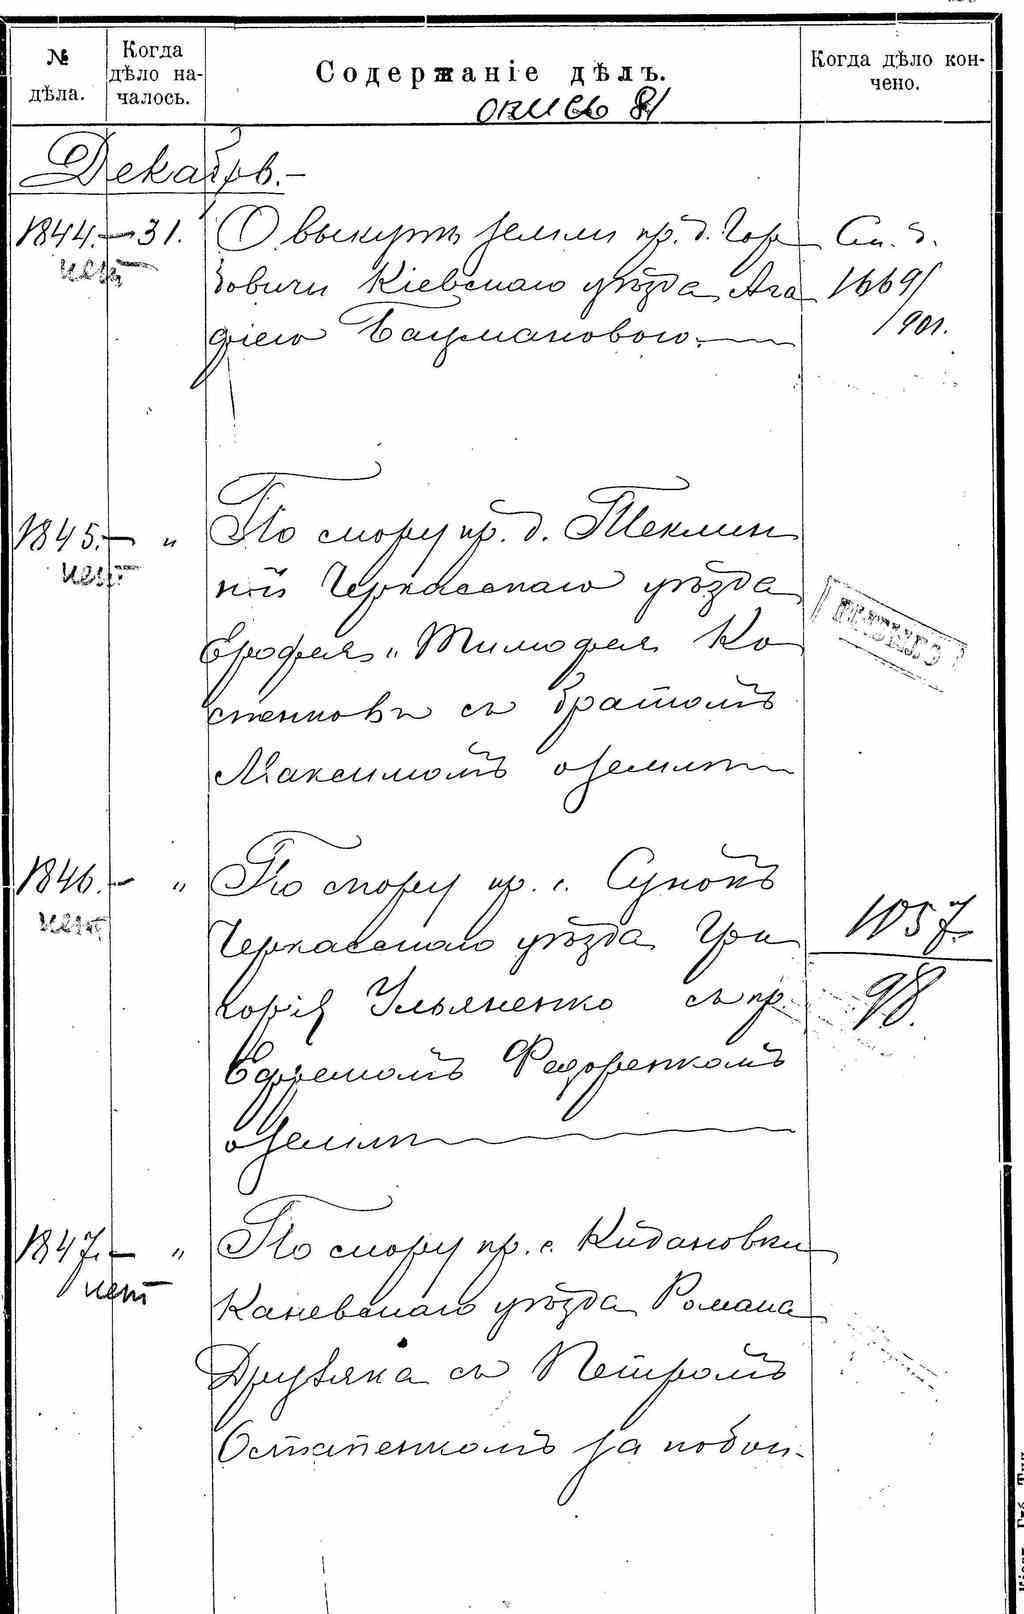 № дѣла.
Когда дѣло началось.
Содержаніе дѣлъ.
Когда дѣло кончено.
опись 81
Декабрь.-
1844. - 31. О выкупѣ земли кр. д. Гор
См. д.
нет
бовичи Кіевскаго уѣзда Ага
1669/
фіею Баумановою.
901.
1845. - " По спору кр. д. Теклин
нет
кой Черкасскаго уѣзда
Ерофея и Тимофея Ко
стенковъ съ братомъ
Максимомъ о землѣ
1846. - " По спору кр. с. Сунокъ
нет
Черкасскаго уѣзда Гри
1057
горія Ульяненко съ кр.
98.
Ефремомъ Федоренкомъ
о землѣ
1847. - " По спору кр. с. Кидановки
нет
Каневскаго уѣзда Романа
Друзяка съ Петромъ
Остапенкомъ за побои.